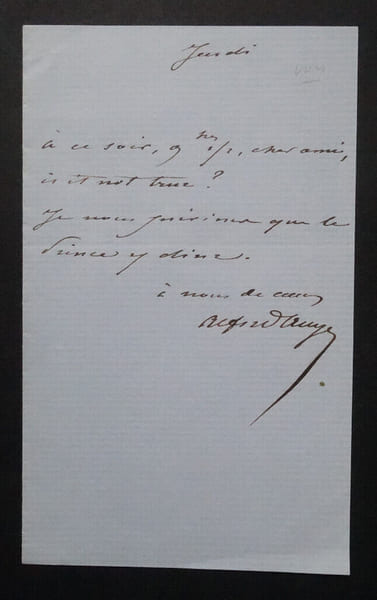 Jeudi
à ce soir, 9 hres 1/2, cher ami,
is it not true?
Je vous préviens que le
Prince y dine.
à vous de cœur
Alfred